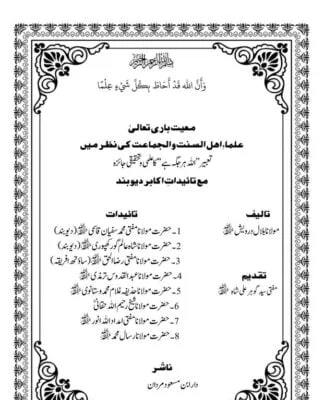 بسم اللہ الرحمن الرحیم
وَأَنَّ الله قَدْ أَحَاطَ بِكُلِّ شَيْءٍ عِلْمًا
معیت باری تعالیٰ
علماء اهل السنت والجماعت کی نظر میں
تعبیر "اللہ ہر جگہ ہے" کا علمی و تحقیقی جائزہ
مع تائیدات اکابر دیوبند
تالیف
مولانا بلال درویش
تقدیم
مفتی سید گوہر علی شاہ
تائیدات
1- حضرت مولانا مفتی محمد سفیان قاسمی (دیوبند)
2- حضرت مولانا شاہ عالم گورکھپوری (دیوبند)
3- حضرت مولانا مفتی رضاء الحق (ساؤتھ افریقہ)
4- حضرت مولانا عبدالقدوس ترمذی
5- حضرت مولانا حذیفہ غلام محمد وستانوی
6- حضرت مولانا شیخ رحیم اللہ حقانی
7- حضرت مولانا مفتی امداد اللہ انور
8- حضرت مولانا رسال محمد
ناشر
دار ابن مسعود مردان